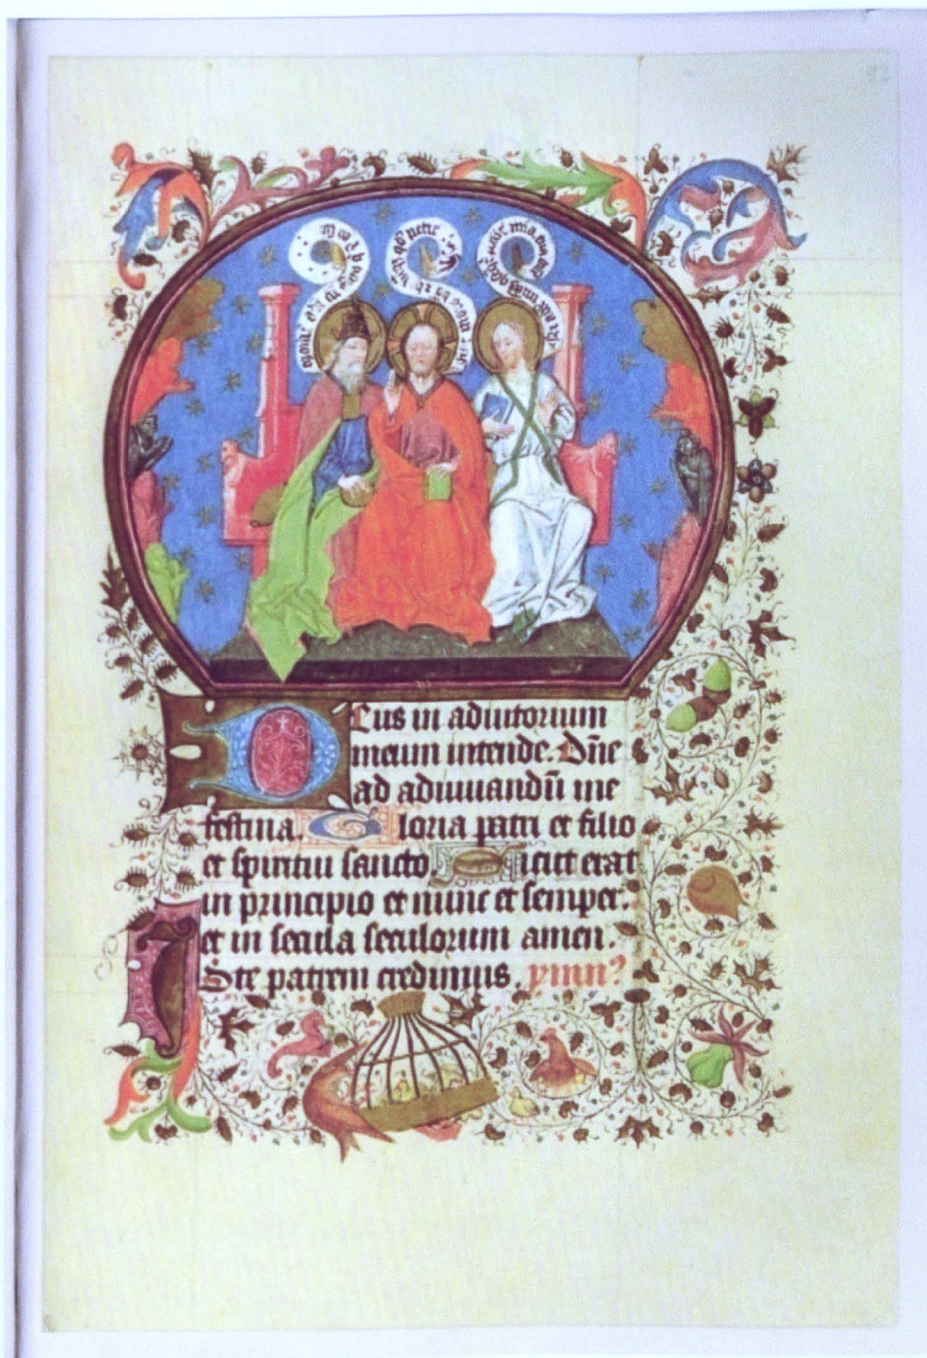 Eus in adiutorium
meum intende. Dn̄e
ad adiuuandū me
festina. Gloria patri et filio
et spiritui sancto. Sicut erat
in principio et nunc et semper.
et in secula seculorum amen.
Ste patrem credimus. ymnꝰ